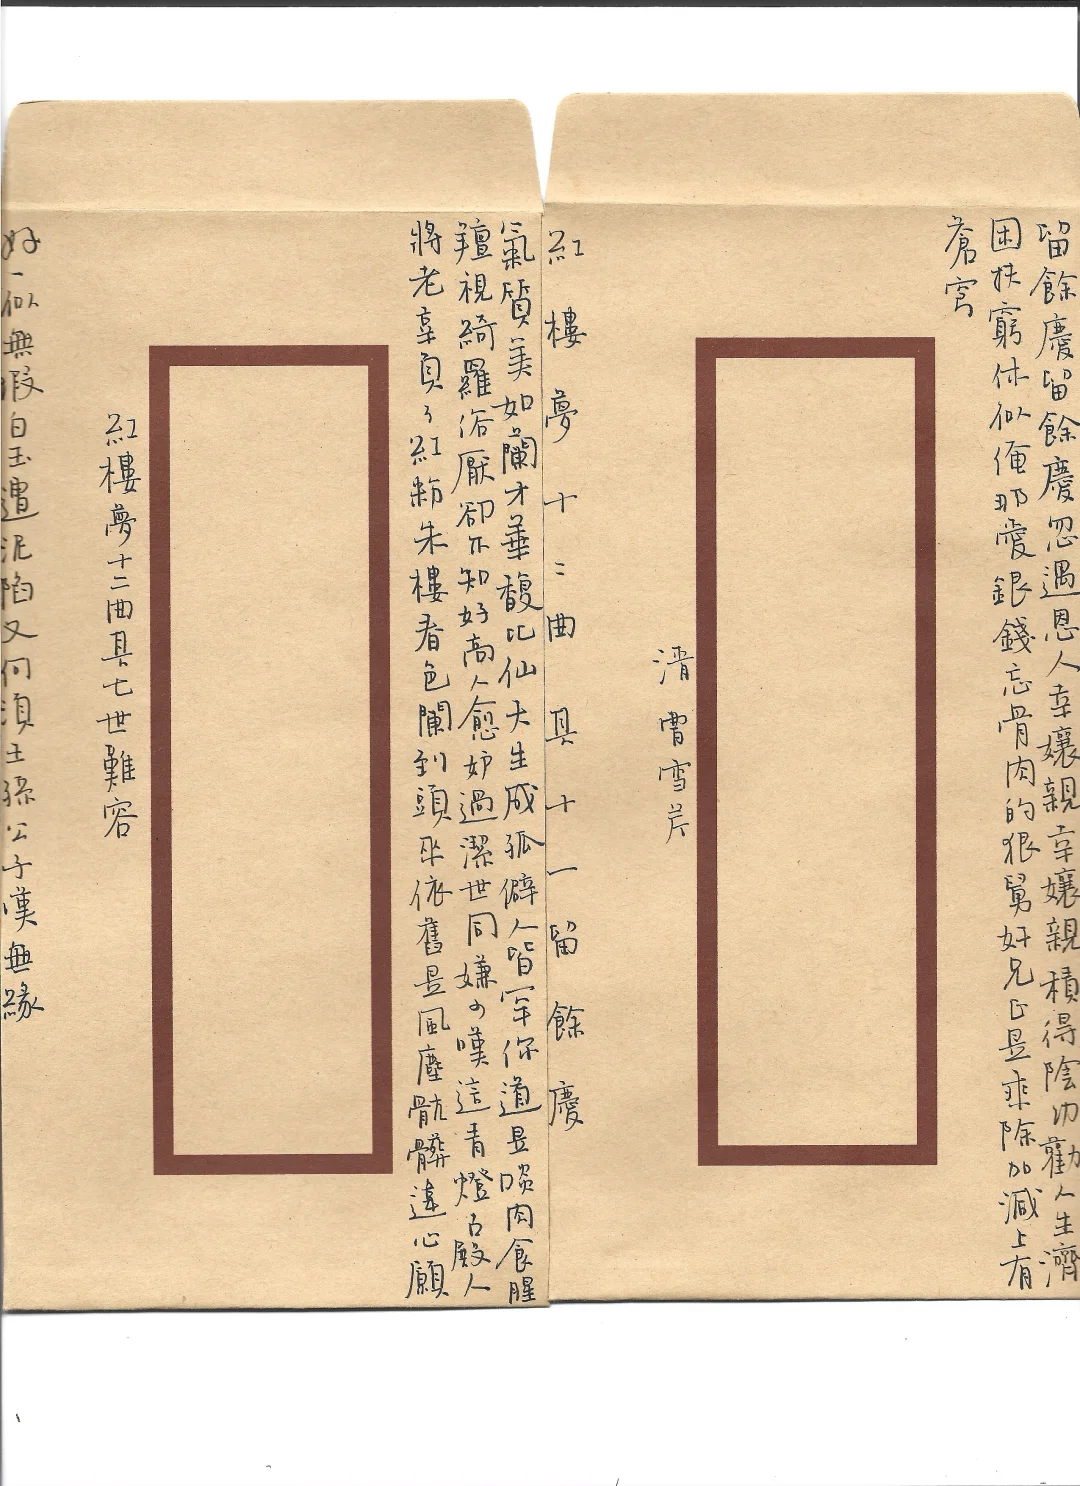 留餘慶留餘慶忽遇恩人幸孃親幸孃親積得陰功勸人生濟
困扶窮休似俺那愛銀錢忘骨肉的狠舅奸兄正是乘除加減上有
蒼穹
清曹雪芹
紅樓夢十二曲其十一留餘慶
氣質美如蘭才華馥比仙天生成孤僻人皆罕你道是啖肉食腥
羶視綺羅俗厭卻不知好高人愈妒過潔世同嫌可嘆這青燈古殿人
將老辜負了紅粉朱樓春色闌到頭來依舊是風塵骯髒違心願
紅樓夢十二曲其七世難容
好一似無瑕白玉遭泥陷又何須王孫公子嘆無緣